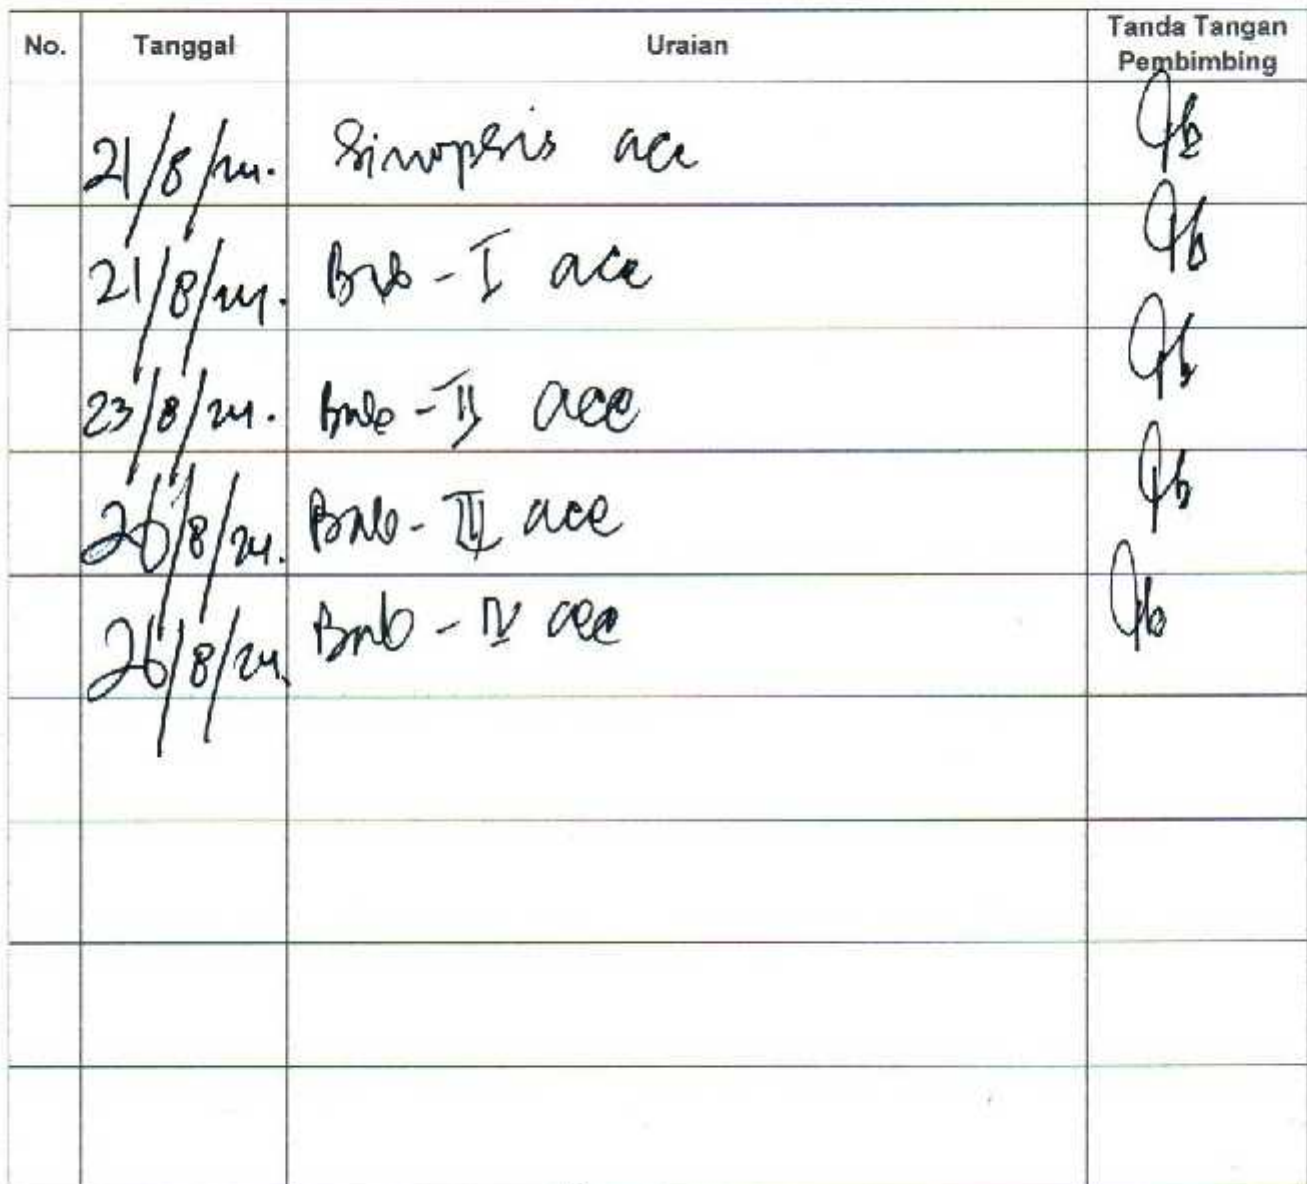 No. Tanggal Uraian Tanda Tangan Pembimbing
21/8/24. Sinopsis acc
21/8/24. Bab - I acc
23/8/24. Bab - II acc
26/8/24. Bab - III acc
26/8/24. Bab - IV acc